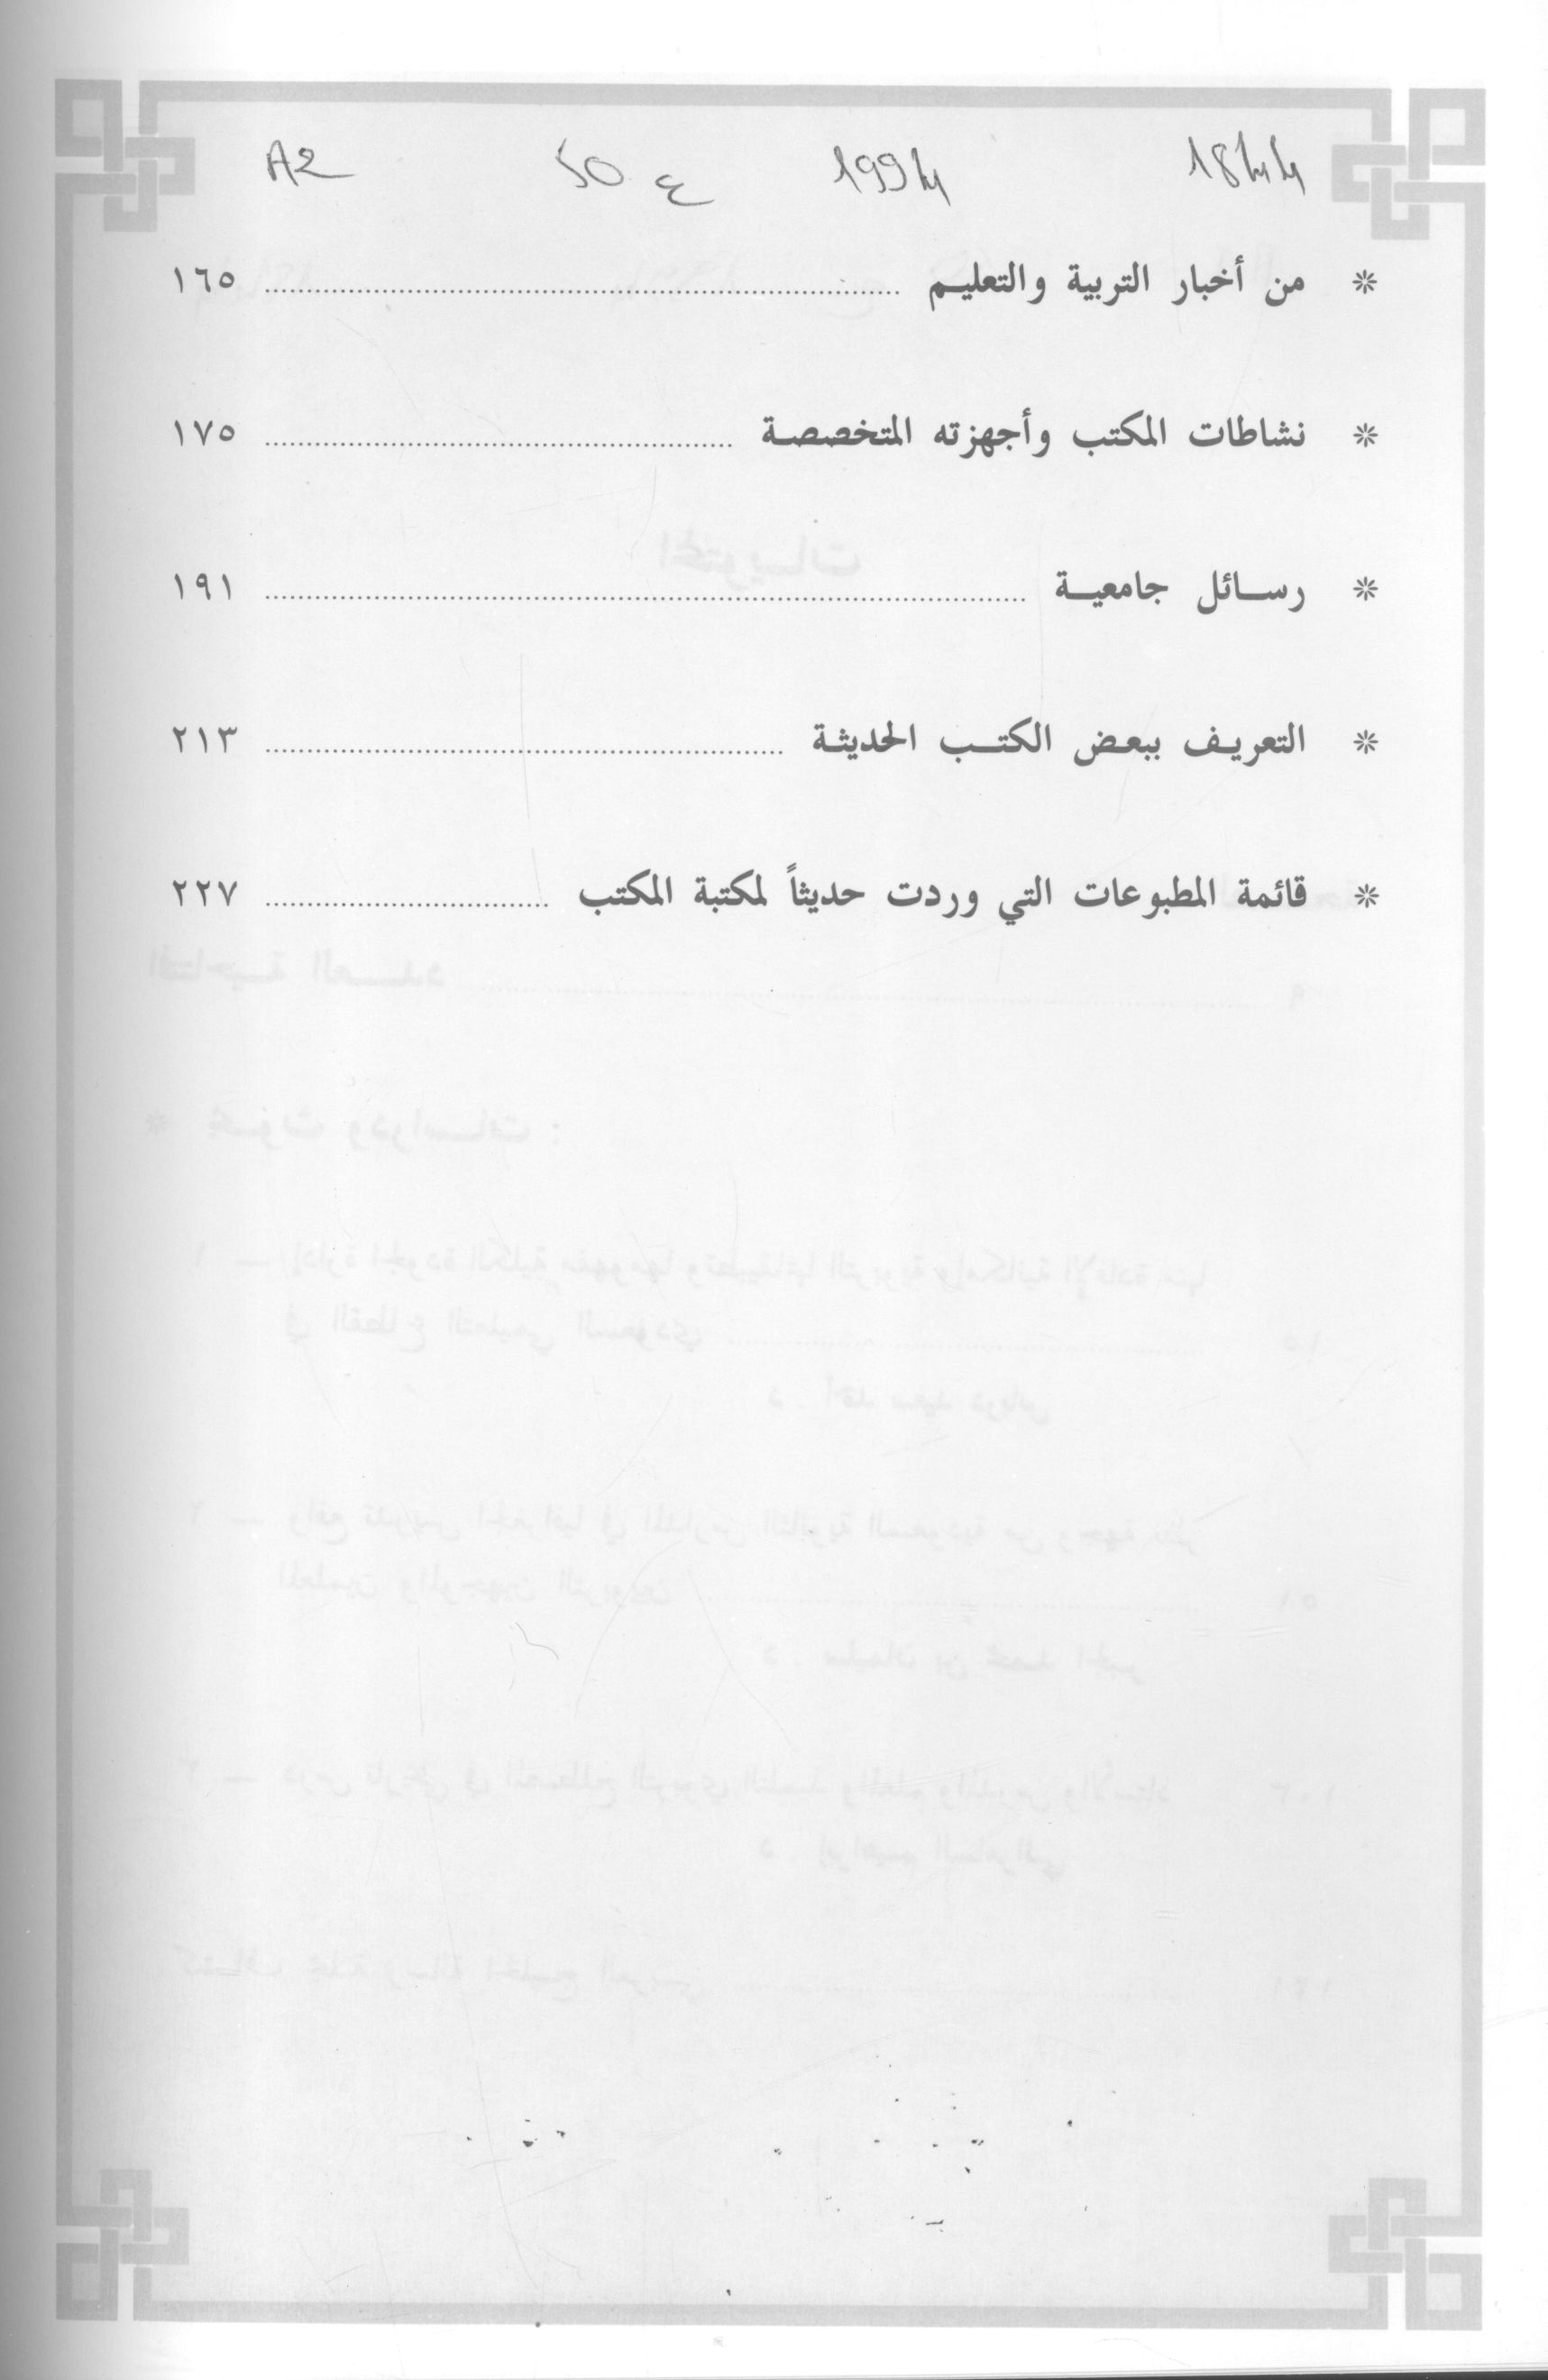 * من أخبار التربية والتعليم ........ ١٦٥
* نشاطات المكتب وأجهزته المتخصصة ........ ١٧٥
* رسائل جامعية ........ ١٩١
* التعريف ببعض الكتب الحديثة ........ ٢١٣
* قائمة المطبوعات التي وردت حديثاً لمكتبة المكتب ........ ٢٢٧